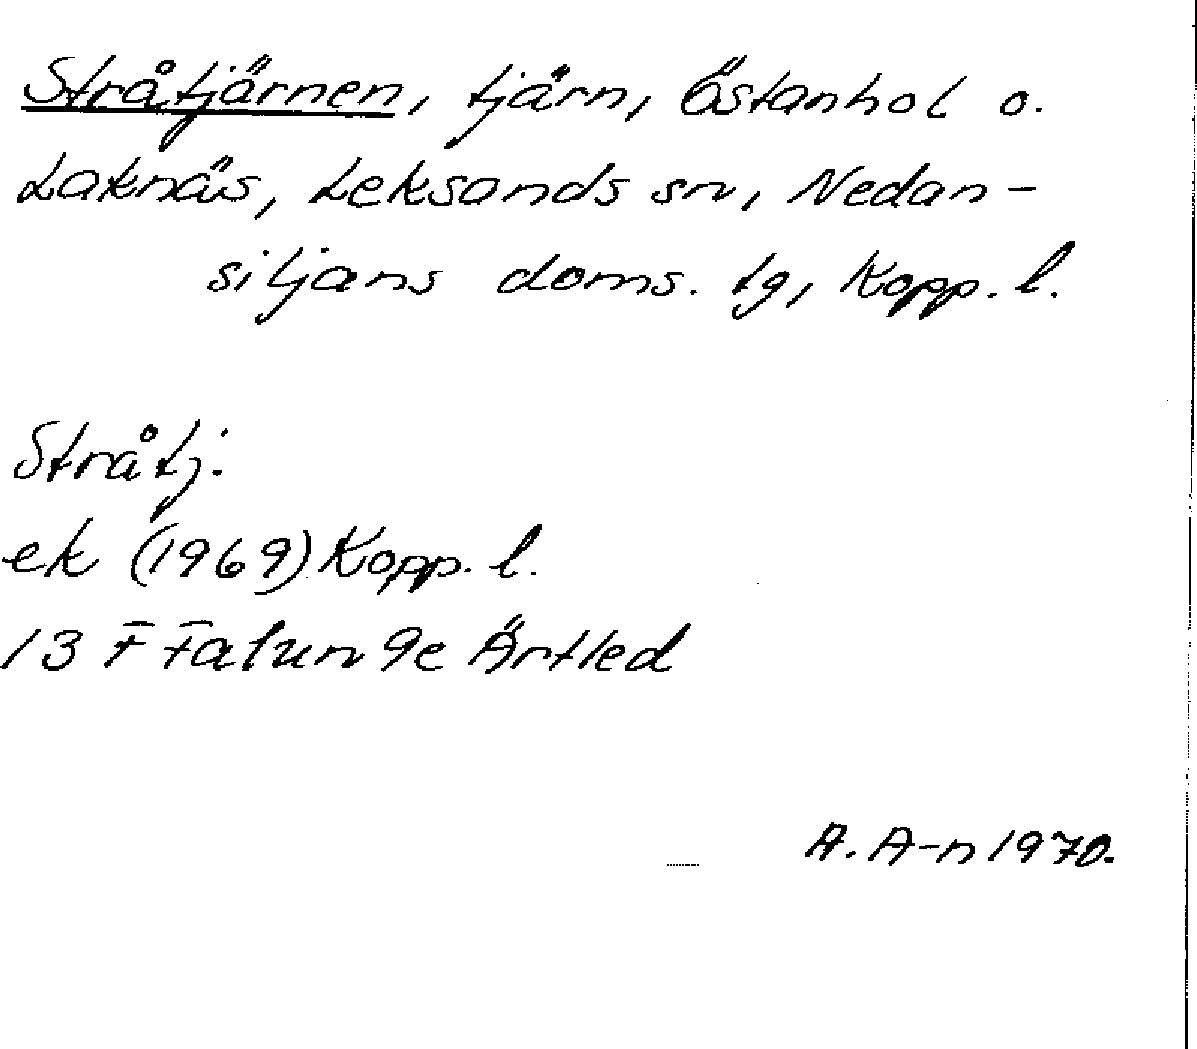 Stråtjärnen, tjärn, Östanhol o.
Laknäs, Leksands sn, Nedan-
siljans doms. tg, Kopp. l.
Stråtj.
ek (1969) Kopp. l.
13 F Falun 9e Ärtled
A. A-n 1970.